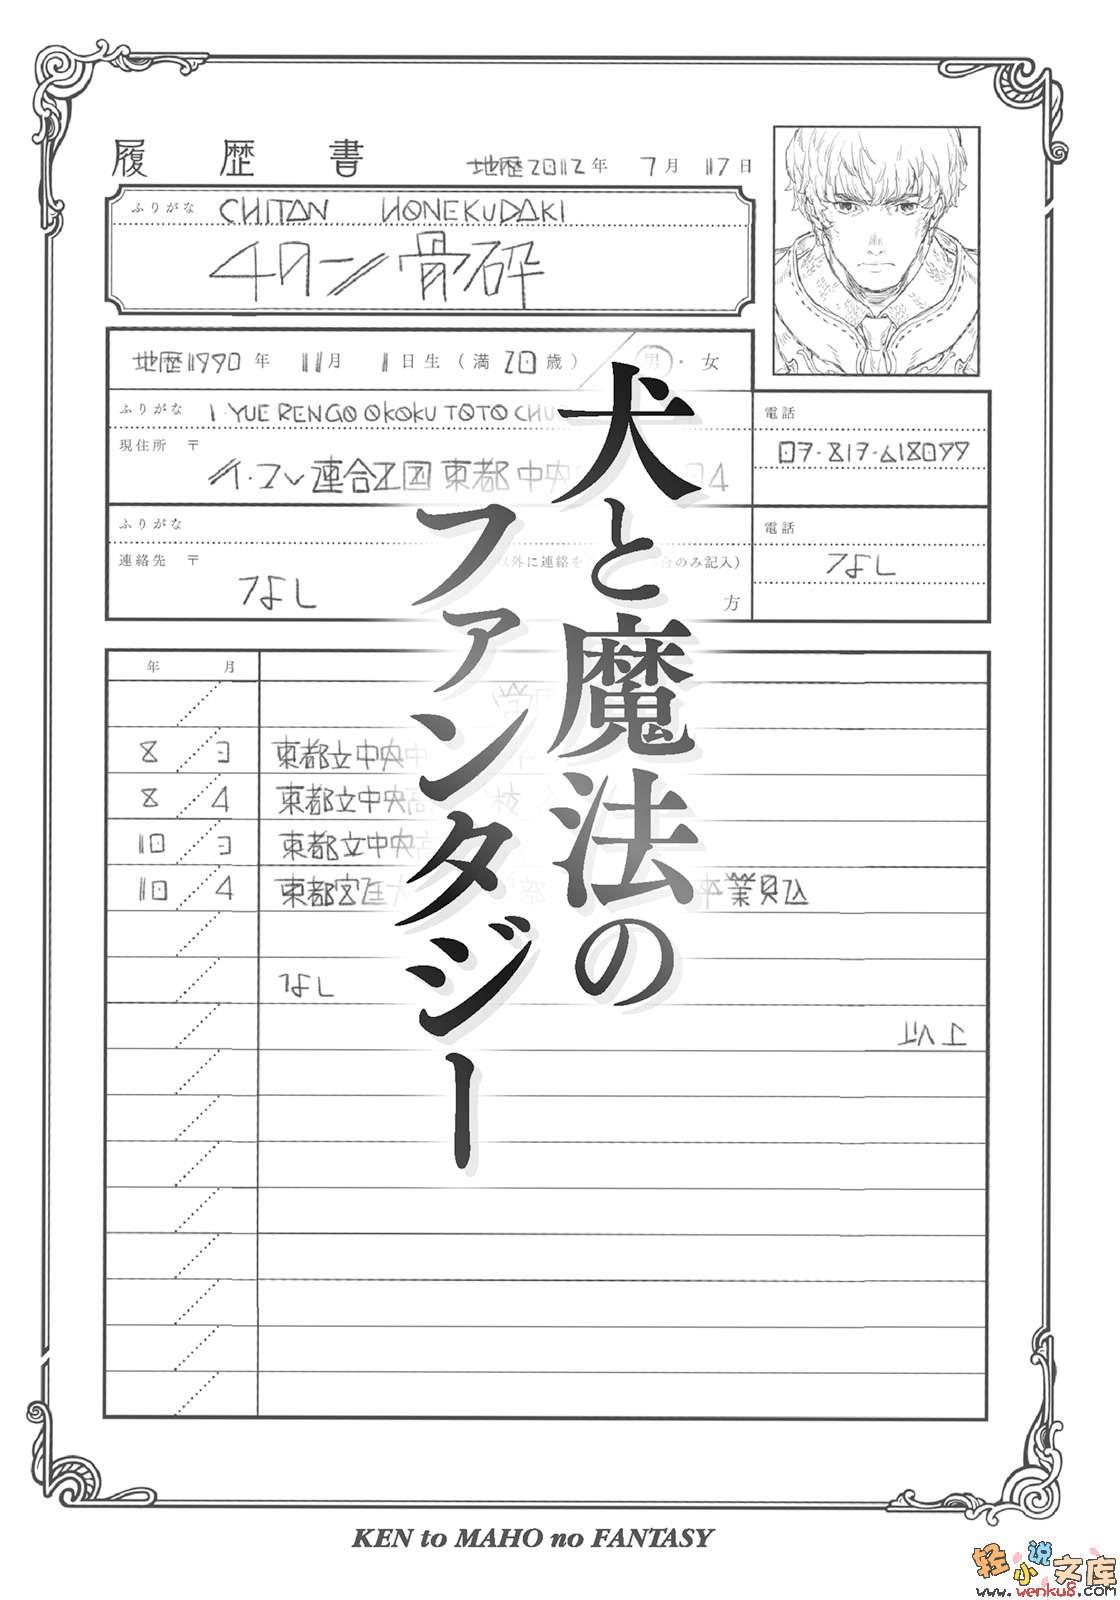 履歴書
地歴2012年 7月 17日
ふりがな CHITAN HONEKUDAKI
チタン骨砕
地歴1990年 11月 1日生（満20歳） 男・女
ふりがな I・YUE RENGO OKOKU TOTO CHU
電話
現住所 〒
07-817-618099
イ・フレ連合王国東都中央 4
ふりがな
電話
連絡先 〒 以外に連絡を のみ記入）
なし
なし
方
年 月
学
8 3 東都立中央中
8 4 東都立中央高 校 入
10 3 東都立中央高
10 4 東都宮廷大 部 卒業見込
なし
以上
犬と魔法の
ファンタジー
KEN to MAHO no FANTASY
轻小说文库
www.wenku8.com